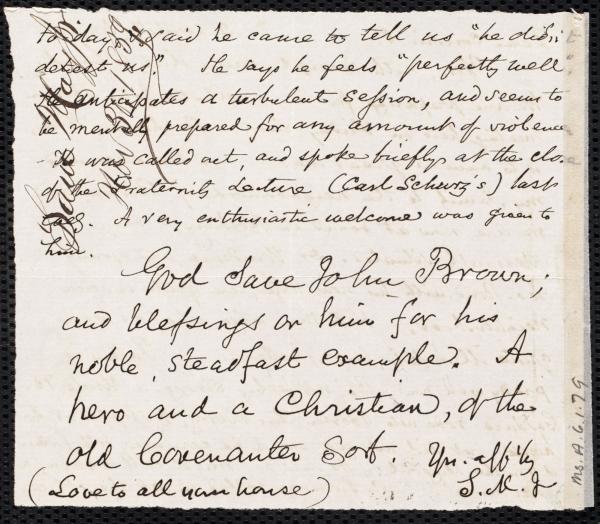 today & said he came to tell us "he didn't
detest us" He says he feels "perfectly well"
He anticipates a turbulent session, and seems to
be mentally prepared for any amount of violence
- He was called out, and spoke briefly at the clo.
of the Fraternity Lecture (Carl Schurz's) last
Tues. A very enthusiastic welcome was given to
him.
God save John Brown;
and blessings on him for his
noble, steadfast example. A
hero and a Christian, of the
old Covenanter sort. Yrs. aff'ly
(Love to all your house) S. M. J
Samuel May Jr
Ms. A. 6.1.79